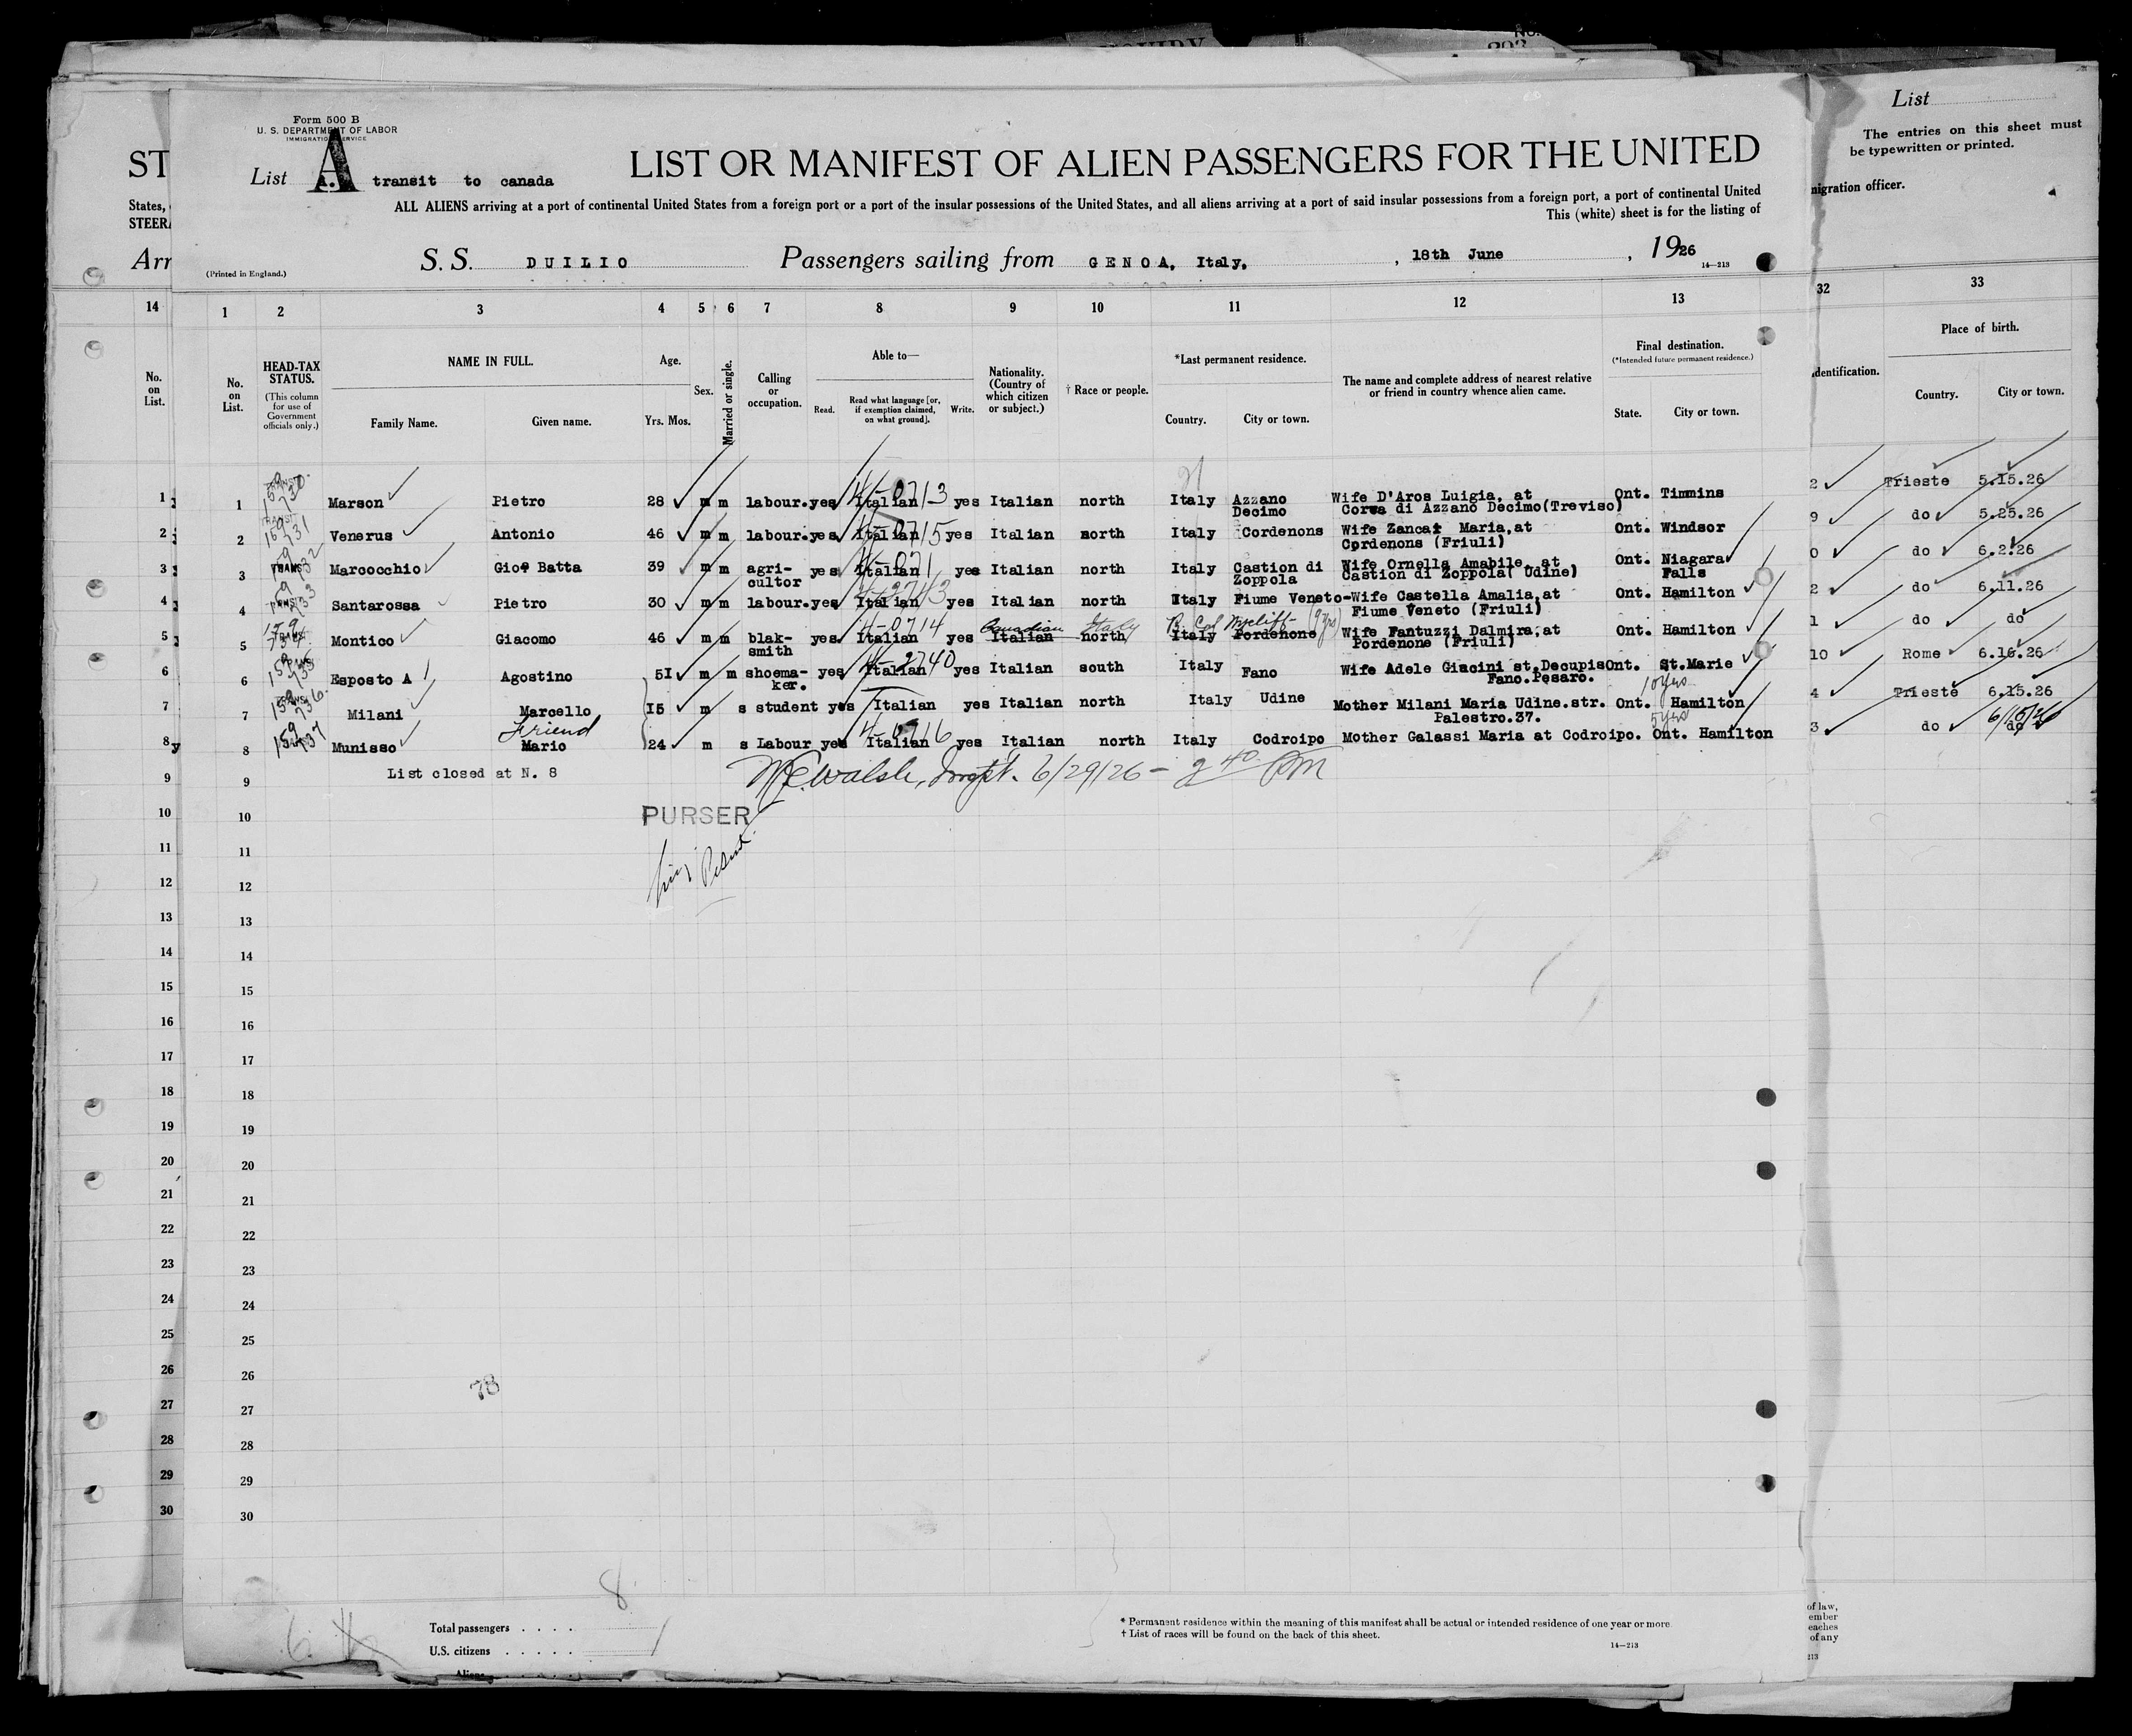 Form 500 B
U. S. DEPARTMENT OF LABOR
IMMIGRATION SERVICE
List A. transit to canada
LIST OR MANIFEST OF ALIEN PASSENGERS FOR THE UNITED
ALL ALIENS arriving at a port of continental United States from a foreign port or a port of the insular possessions of the United States, and all aliens arriving at a port of said insular possessions from a foreign port, a port of continental United
This (white) sheet is for the listing of
S. S. DUILIO Passengers sailing from GENOA, Italy, , 18th June , 1926
(Printed in England.)
14—213
1 2 3 4 5 6 7 8 9 10 11 12 13
No. on List.
HEAD-TAX STATUS.
(This column for use of Government officials only.)
NAME IN FULL.
Family Name. Given name.
Age.
Yrs. Mos.
Sex.
Married or single.
Calling or occupation.
Able to—
Read. Read what language [or, if exemption claimed, on what ground]. Write.
Nationality. (Country of which citizen or subject.)
† Race or people.
*Last permanent residence.
Country. City or town.
The name and complete address of nearest relative or friend in country whence alien came.
Final destination.
(*Intended future permanent residence.)
State. City or town.
1 Marson Pietro 28 m m labour. yes Italian yes Italian north Italy Azzano Decimo Wife D'Aros Luigia, at Corva di Azzano Decimo(Treviso) Ont. Timmins
2 Venerus Antonio 46 m m labour. yes Italian yes Italian north Italy Cordenons Wife Zancar Maria,at Cordenons (Friuli) Ont. Windsor
3 Marcocchio Gio? Batta 39 m m agri-cultor yes Italian yes Italian north Italy Castion di Zoppola Wife Ornella Amabile, at Castion di Zoppola( Udine) Ont. Niagara Falls
4 Santarossa Pietro 30 m m labour. yes Italian yes Italian north Italy Fiume Veneto-Wife Castella Amalia,at Fiume Veneto (Friuli) Ont. Hamilton
5 Montico Giacomo 46 m m blak-smith yes Italian yes Canadian Italian Italy north Italy Pordenone Wife Fantuzzi Dalmira,at Pordenone (Friuli) Ont. Hamilton
6 Esposto A Agostino 5I m m shoema-ker. yes Italian yes Italian south Italy Fano Wife Adele Giacini st.Decupis Fano.Pesaro. Ont. St.Marie
10yrs
7 Milani Marcello I5 m s student yes Italian yes Italian north Italy Udine Mother Milani Maria Udine.str. Palestro.37. Ont. Hamilton
friend
5yrs
8 Munisso Mario 24 m s Labour yes Italian yes Italian north Italy Codroipo Mother Galassi Maria at Codroipo. Ont. Hamilton
9 List closed at N. 8
6/29/26 - 2 40 PM
10
PURSER
11
12
13
14
15
16
17
18
19
20
21
22
23
24
25
26
78
27
28
29
30
8
Total passengers . . . .
U.S. citizens . . . . .
* Permanent residence within the meaning of this manifest shall be actual or intended residence of one year or more
† List of races will be found on the back of this sheet.
14—213
ST
States,
STEERA
Arr
14
No. on List.
1
2
3
4
5
6
7
8
9
10
11
12
13
14
15
16
17
18
19
20
21
22
23
24
25
26
27
28
29
30
List
The entries on this sheet must
be typewritten or printed.
migration officer.
32 33
dentification.
Place of birth.
Country. City or town.
2 Trieste 5.15.26
9 do 5.25.26
0 do 6.2.26
2 do 6.11.26
1 do do
10 Rome 6.16.26
4 Trieste 6.15.26
3 do do 6/15/26
of law,
ember
eaches
of any
213